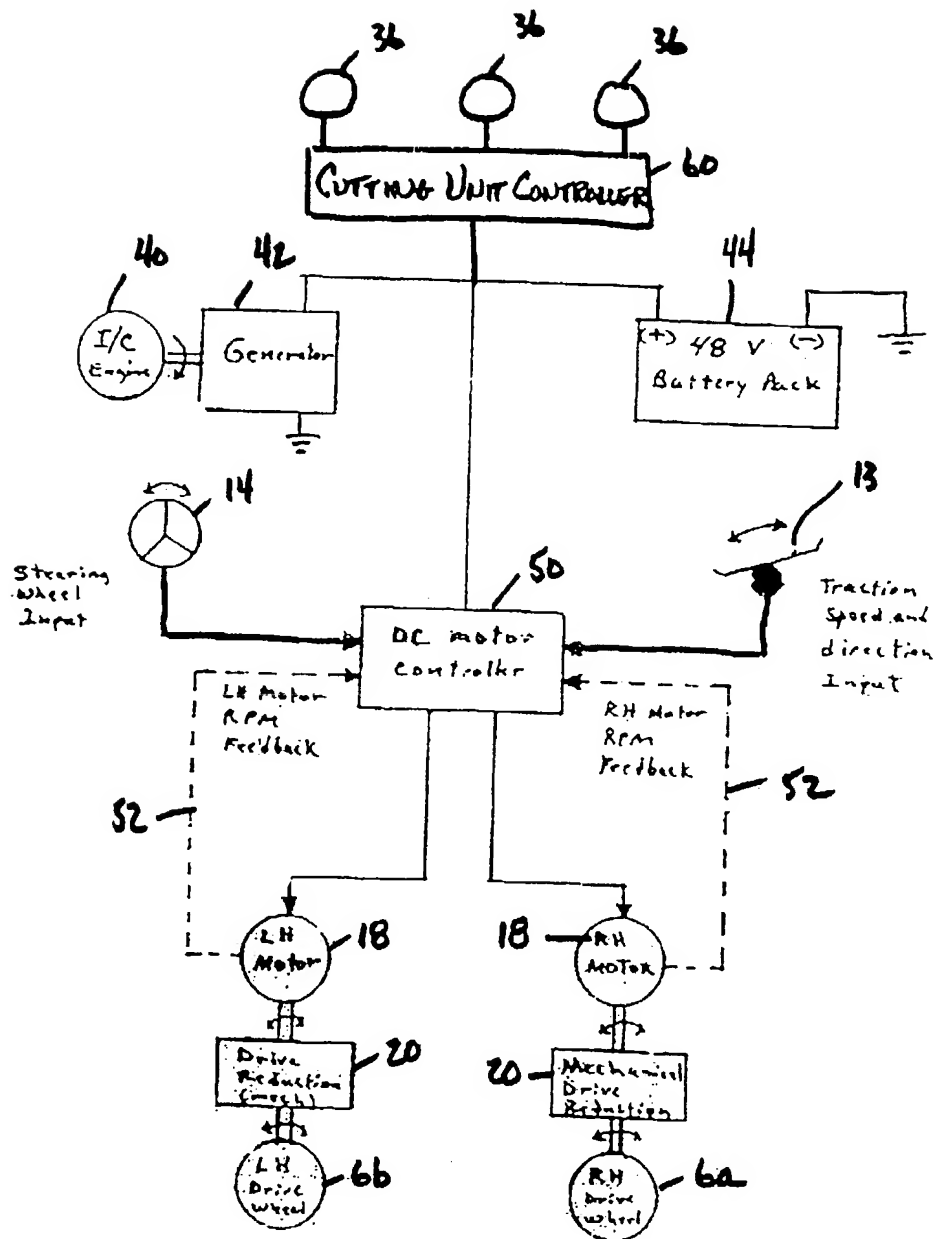 36 36 36
60
CUTTING UNIT CONTROLLER
40 42 44
I/C
Engine
Generator
(+) 48 V (-)
Battery Pack
14
13
Steering
Wheel
Input
50
DC motor
Controller
Traction
Speed and
direction
Input
LH Motor
RPM
Feedback
RH Motor
RPM
Feedback
52
52
LH
Motor
18
18
RH
MOTOR
Drive
Reduction
(mech)
20
20
Mechanical
Drive
Reduction
LH
Drive
Wheel
6b
RH
Drive
Wheel
6a